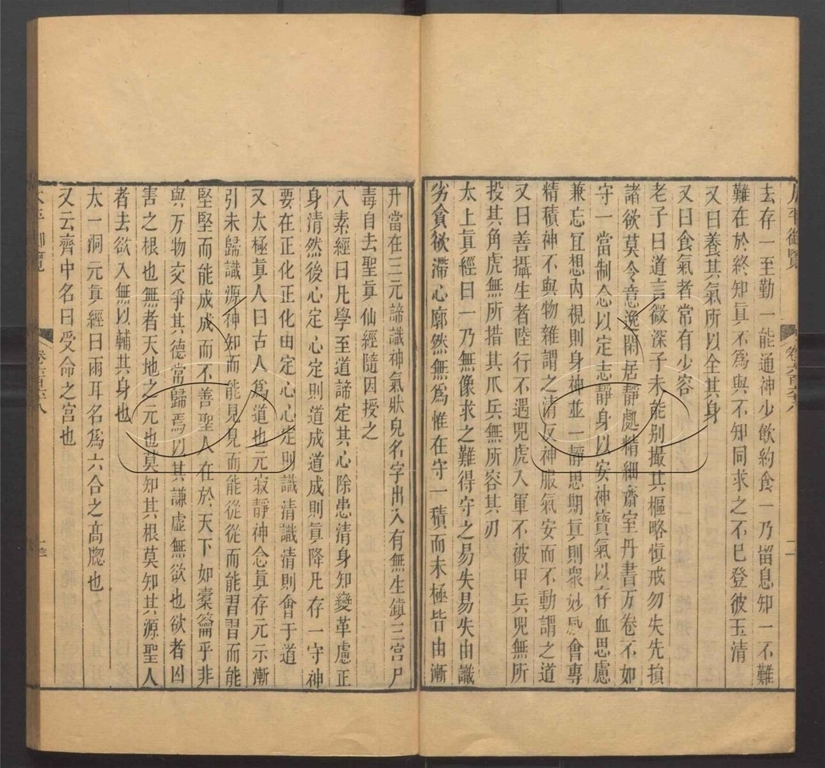 太平御覽
卷六百六十八
二
去存一至勤一能通神少飲約食一乃留息知一不難
難在於終知真不爲與不知同求之不已登彼玉清
又曰養其氣所以全其身
又曰食氣者常有少容
老子曰道言微深子未能别撮其樞略愼戒勿失先損
諸欲莫令意逸閑居靜處精細齋室丹書万卷不如
守一當制念以定志靜身以安神寶氣以存血思慮
兼忘冥想内視則身神並一靜思期真則衆妙感會專
精積神不與物雜謂之清反神服氣安而不動謂之道
又曰善攝生者陸行不遇兕虎入軍不被甲兵兕無所
投其角虎無所措其爪兵無所容其刃
太上真經曰一乃無像求之難得守之易失易失由識
劣貪欲滯心廓然無爲惟在守一積而未極皆由漸
升當在三元諦識神氣狀皃名字出入有無生鎮三宮尸
毒自去聖真仙經隨因授之
入素經曰凡學至道諦定其心除患清身知變革慮正
身清然後心定心定則道成道成則真降凡存一守神
要在正化正化由定心心定則識清識清則會于道
又太極真人曰古人爲道也元寂靜神念真存元示漸
引未歸識源神知而能見見而能從從而能習習而能
堅堅而能成成而不善聖人在於天下如橐籥乎非
與万物交爭其德常歸焉以其謙虛無欲也欲者凶
害之根也無者天地之元也莫知其根莫知其源聖人
者去欲入無以輔其身也
太一洞元真經曰兩耳名爲六合之髙牕也
又云臍中名曰受命之宮也
太平御覽
卷六百六十八
三